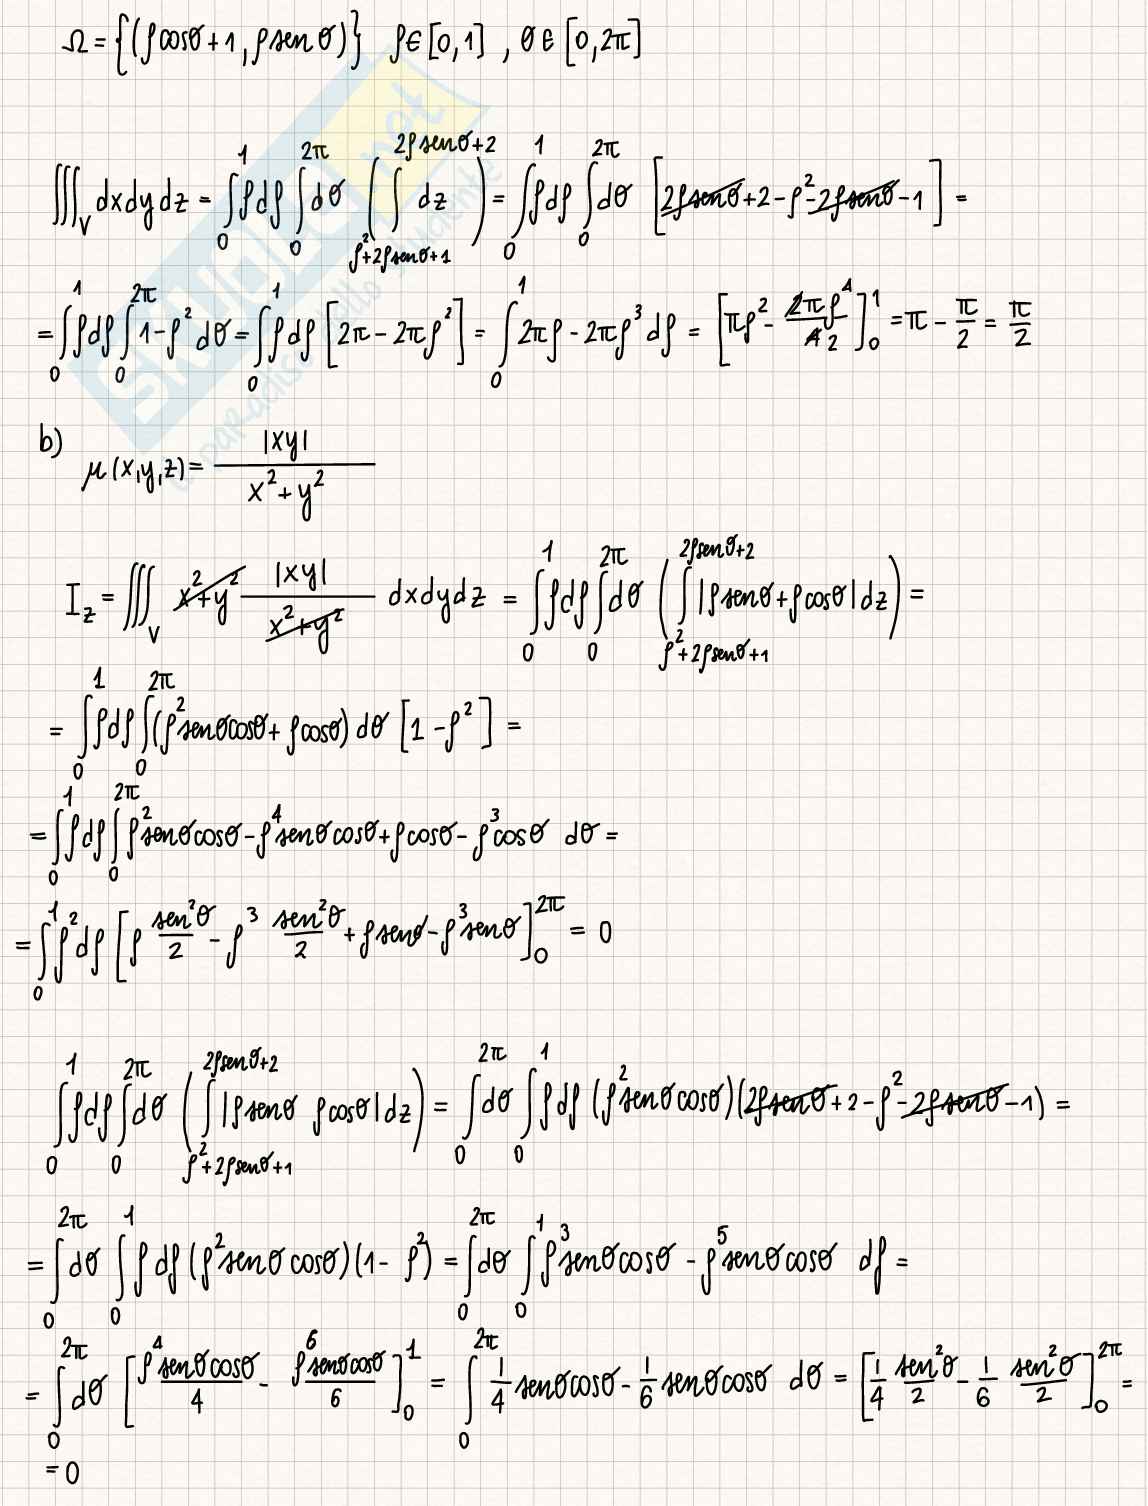 Ω = {(ρcosθ+1, ρsenθ)} ρ∈[0,1], θ∈[0,2π]
∭_V dxdydz = ∫_0^1 ρdρ ∫_0^{2π} dθ (∫_{ρ²+2ρsenθ+1}^{2ρsenθ+2} dz) = ∫_0^1 ρdρ ∫_0^{2π} dθ [2ρsenθ+2-ρ²-2ρsenθ-1] =
= ∫_0^1 ρdρ ∫_0^{2π} 1-ρ² dθ = ∫_0^1 ρdρ [2π-2πρ²] = ∫_0^1 2πρ-2πρ³ dρ = [πρ² - 2πρ⁴/4 2]_0^1 = π - π/2 = π/2
b)
μ(x,y,z) = |xy| / x²+y²
I_z = ∭_V x²+y² |xy| / x²+y² dxdydz = ∫_0^1 ρdρ ∫_0^{2π} dθ (∫_{ρ²+2ρsenθ+1}^{2ρsenθ+2} |ρsenθ+ρcosθ| dz) =
= ∫_0^1 ρdρ ∫_0^{2π} (ρ²senθcosθ+ρcosθ) dθ [1-ρ²] =
= ∫_0^1 ρdρ ∫_0^{2π} ρ²senθcosθ-ρ⁴senθcosθ+ρcosθ-ρ³cosθ dθ =
= ∫_0^1 ρ²dρ [ρ sen²θ/2 - ρ³ sen²θ/2 + ρsenθ - ρ³senθ]_0^{2π} = 0
∫_0^1 ρdρ ∫_0^{2π} dθ (∫_{ρ²+2ρsenθ+1}^{2ρsenθ+2} |ρsenθ ρcosθ| dz) = ∫_0^{2π} dθ ∫_0^1 ρdρ (ρ²senθcosθ)(2ρsenθ+2-ρ²-2ρsenθ-1) =
= ∫_0^{2π} dθ ∫_0^1 ρdρ (ρ²senθcosθ)(1-ρ²) = ∫_0^{2π} dθ ∫_0^1 ρ³senθcosθ - ρ⁵senθcosθ dρ =
= ∫_0^{2π} dθ [ρ⁴senθcosθ/4 - ρ⁶senθcosθ/6]_0^1 = ∫_0^{2π} 1/4 senθcosθ - 1/6 senθcosθ dθ = [1/4 sen²θ/2 - 1/6 sen²θ/2]_0^{2π} =
= 0